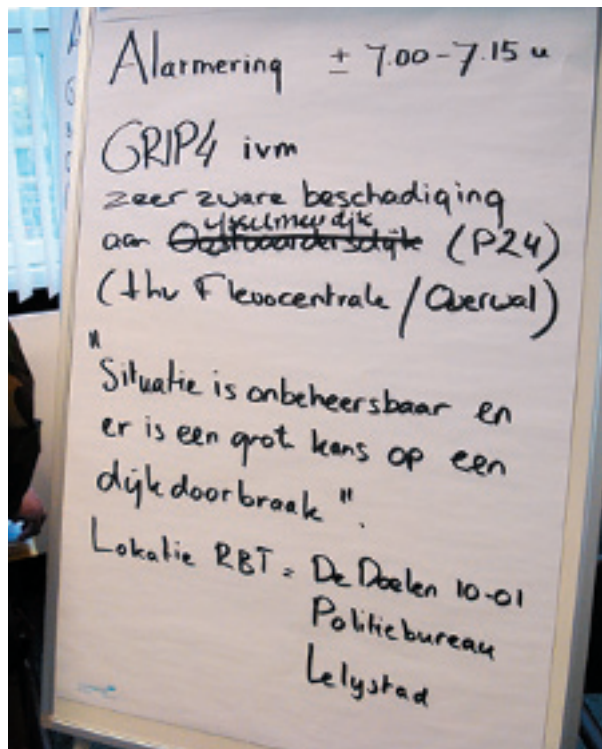 Alarmering ± 7.00-7.15 u
GRIP4 ivm
zeer zware beschadiging
ijsselmeerdijk
aan Oostvaardersdijk (P24)
(thv Flevocentrale / Overwal)
"Situatie is onbeheersbaar en
er is een grot kans op een
dijkdoorbraak".
Lokatie RBT = De Doelen 10-01
Politiebureau
Lelystad